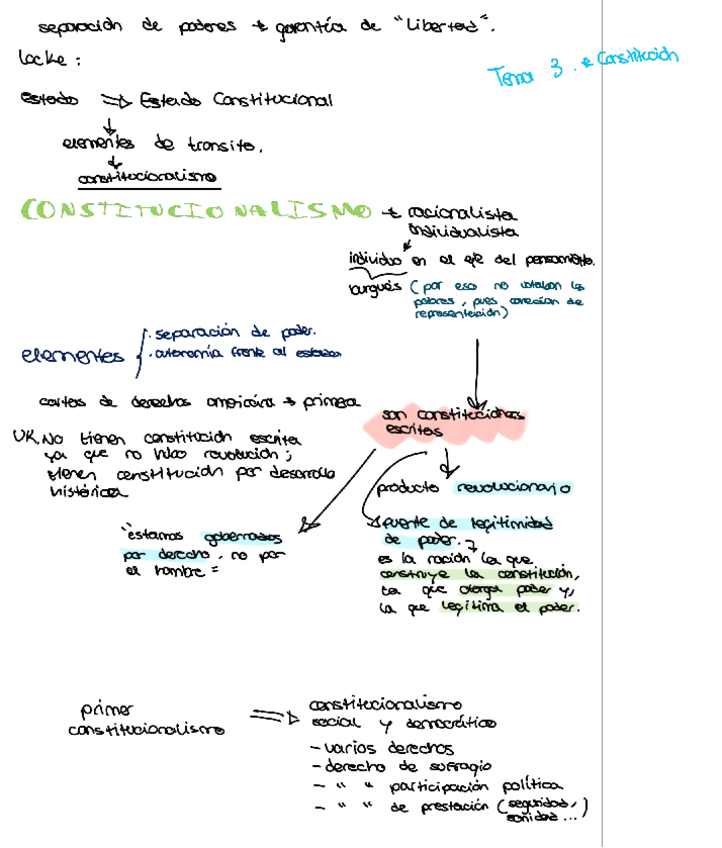 separación de poderes → garantía de "Libertad".
Locke :
Tema 3. → Constitución
estado ⇒ Estado Constitucional
↓
elementes de transito.
↓
constitucionalismo
CONSTITUCIONALISMO → racionalista
individualista
individuo en el eje del pensamiento.
burgués (por eso no votaban los
pobres, pues carecían de
representación)
elementes { · separación de poder.
· autonomía frente al estado
cartas de derechos → primera
son constituciones
escritas
UK. No tienen constitución escrita
ya que no hubo revolución ;
tienen constitución por desarrollo
histórico
producto revolucionario
"estamos gobernados
por derecho, no por
el hombre =
fuente de legitimidad
de poder.
es la nación la que
construye la constitución,
la que otorga poder y,
la que legitima el poder.
primer
constitucionalismo
⇒ constitucionalismo
social y democrático
- varios derechos
- derecho de sufragio
- " " participación política
- " " de prestación (seguridad,
sanidad ...)